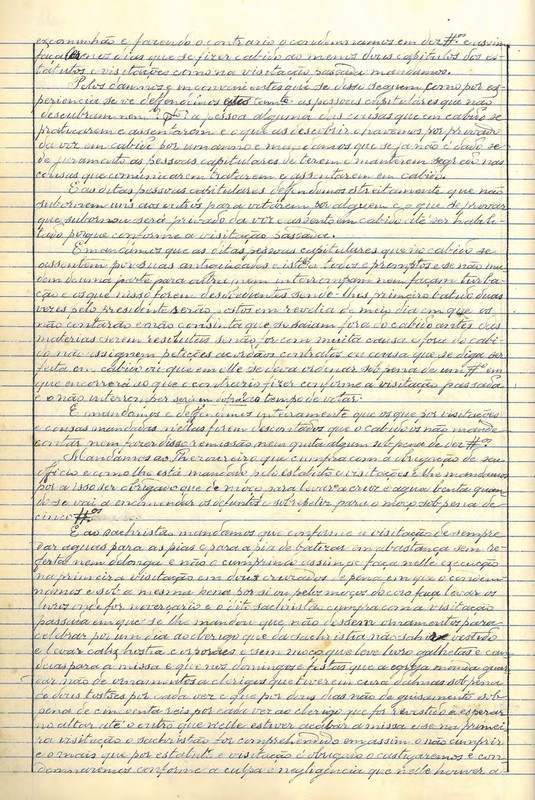 excominhão e fazendo o contrario o condemnamos em dez #.os e assim
faça lêr nez dias que se fizer cabido ao menos dous capitulos dos es-
tatutos e visitações como na visitação passada mandamos.
Pelos damnos e inconvenientes que se disso seguem como por ex-
periencia se vê defendemos as pessoas capitulares que não
descubram nem a pessoa alguma das cousas que em cabido se
praticarem e assentarem e o que as descobrir o havemos por privado
da voz em cabido por um anno e mandamos que se já não é dado se
dê juramento ás pessoas capitulares de terem e manterem segredo nas
cousas que comunicarem tratarem e assentarem em cabido.
E ás ditas pessoas capitulares defendemos estreitamente que não
subornem uns aos outros para votarem por alguem e o que se provar
que subornou será privado da voz e assento em cabido até ser habili-
tado porque conforme a visitação passada.
E mandamos que as ditas pessoas capitulares que no cabido se
assentem por suas antiguidades e istos todos e promptos e se não mu-
dem de uma parte para outra nem interrompam nem façam turba-
ção e os que nisso forem desobedientes sendo-lhes primeiro dito duas
vezes pelo presidente serão postos em revelia de meio dia em que os
não contarão e não consinta que se saiam fora do cabido antes das
materias serem resolutas se não for com muita causa e fora do cabi-
do não assignem petições accordãos contratos ou cousa que se diga ser
feita em cabido ou que em elle se deva ordenar sob pena de um #.o em
que encorrerá o que o contrario fizer conforme a visitação passada
e o não interrompa seria em tempo de votar.
E mandamos e definimos inteiramente que os que por visitações
e cousas mandadas n'ellas forem descontados que o cabido os não mande
contar nem fazer disso remissão nem quita alguma sob pena de dez #.os
Mandamos ao Thezoureiro que cumpra com a obrigação de seu
officio e como lhe está mandado pelo Estatuto e visitações e lhe mandamos
por a isso ser obrigado que dê moço para levar a cruz e agua benta quan-
do se vai a encomendar os defuntos e sobrepeliz para o moço sob pena de
cinco #.os
E ao sachristão mandamos que conforme a visitação dê sempre
dar aguas para as pias e para a pia de batizar em abastança sem re-
ferta nem delonga e não o cumprindo assim se faça nelle execução
na primeira visitação em dous cruzados de pena em que o condem-
namos e sob a mesma pena por si ou pelos moços do coro faça levar os
livros onde for noverçario e o dito sachristão cumpra com a visitação
passada em que se lhe mandou que não dessem ornamentos para
celebrar por um dia ao clerigo que da sachristia não sahir vestido
e levar caliz hostia e corporaes e sem moço que leve livro galhetas e can-
deias para a missa e que nos domingos e festas que a egreja manda guar-
dar não dê ornamentos a clerigos que tiverem cura d'almas sob pena
de dous tostões por cada vez e que por dous dias não dê guisamento sob
pena de cincoenta reis por cada vez ao clerigo que for revestido e esperar
no altar até o outro que nelle estiver acabar a missa e se na primei-
ra visitação o sachristão for comprehendido em assim o não cumprir
e o mais que por estatuto e visitação é obrigado o castigaremos e con-
demnaremos conforme a culpa e negligencia que nelle houver e